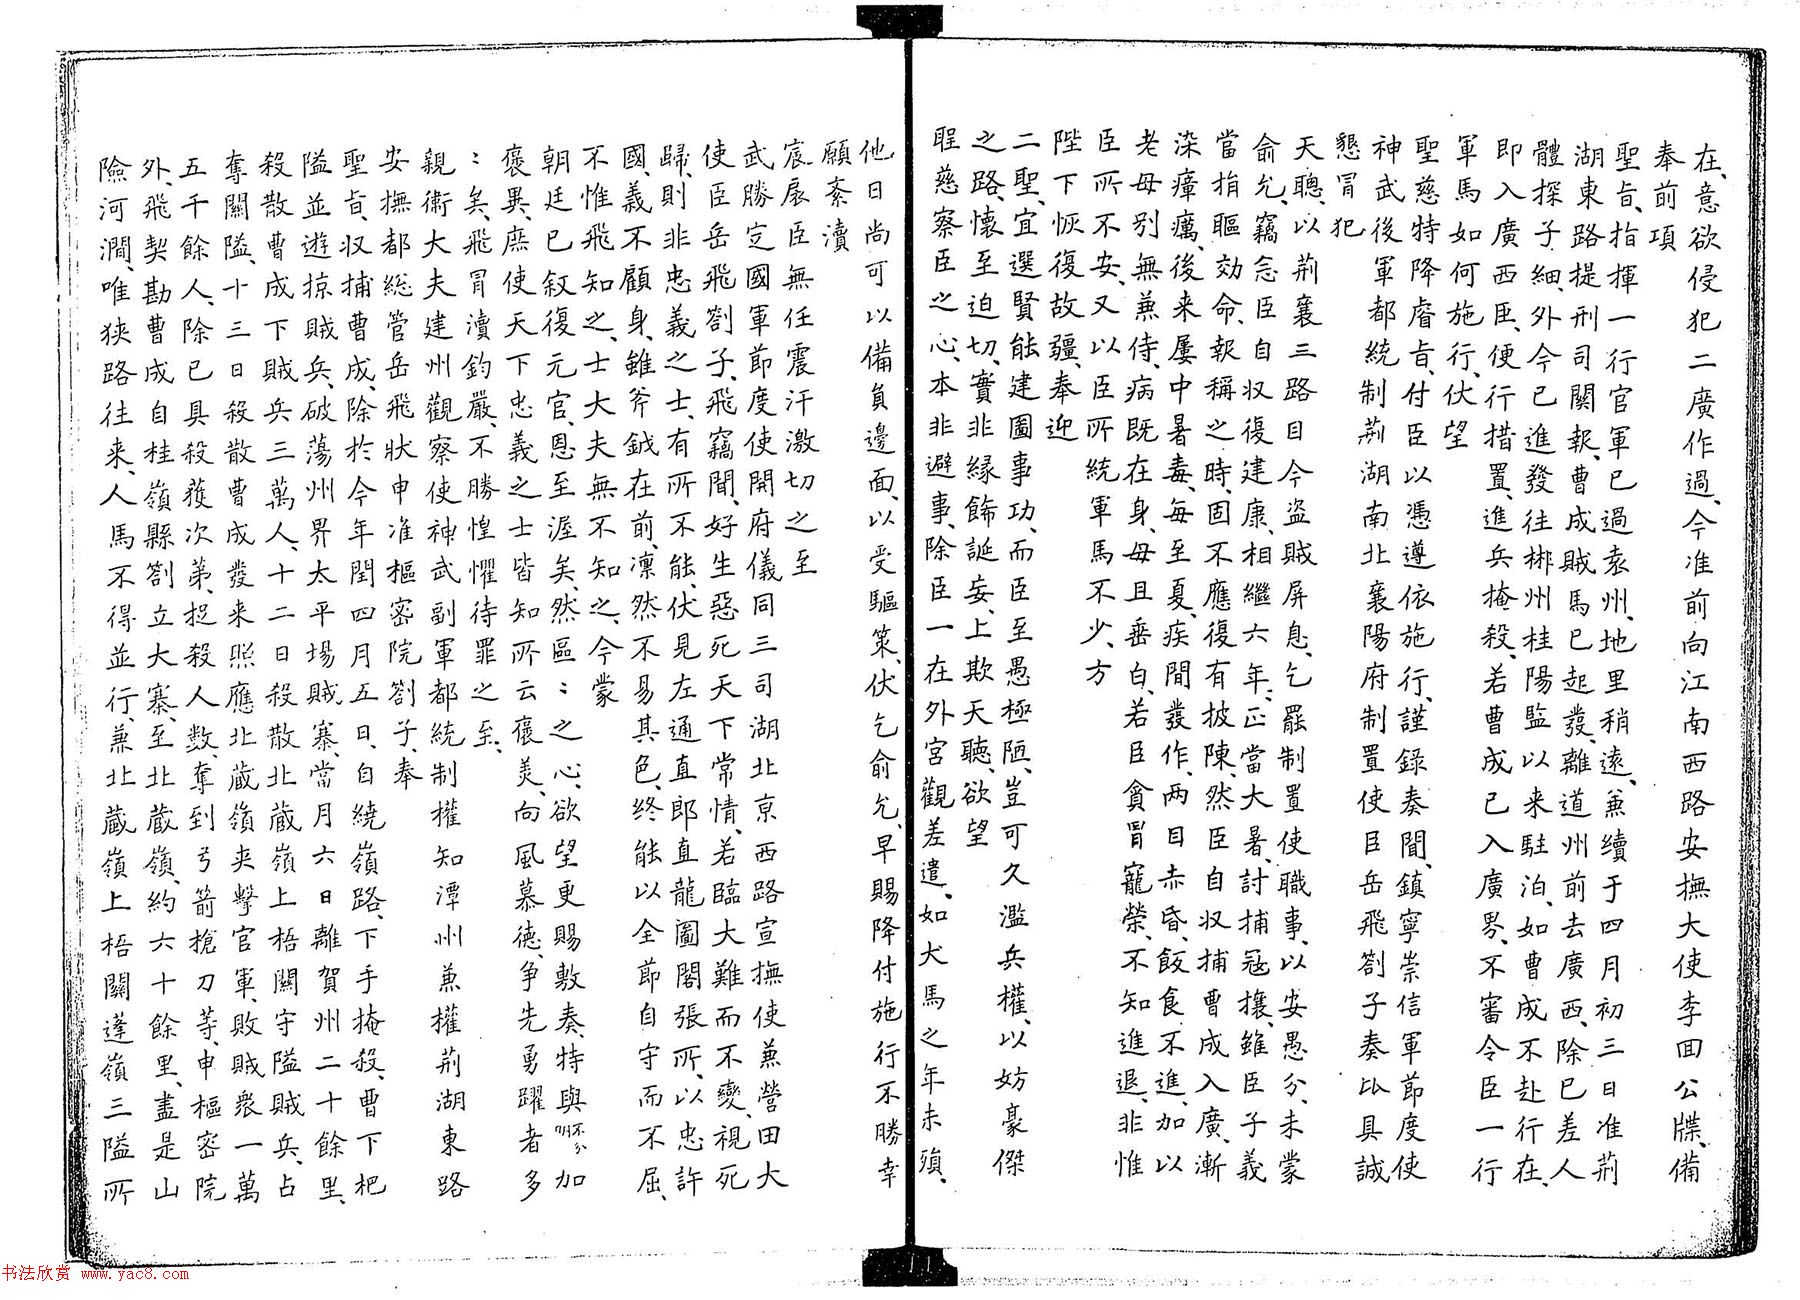 在、意欲侵犯二廣作過、今准前向江南西路安撫大使李回公牒、備
奉前項
聖旨、指揮一行官軍已過袁州、地里稍遠、兼續于四月初三日准荊
湖東路提刑司関報、曹成賊馬已起發、離道州前去廣西、除已差人
體探子細、外今已進發往郴州桂陽監以来駐泊、如曹成不赴行在、
即入廣西、臣便行措置、進兵掩殺、若曹成已入廣界、不審令臣一行
軍馬如何施行、伏望
聖慈特降睿旨、付臣以憑遵依施行、謹録奏聞、鎮寧崇信軍節度使
神武後軍都統制荊湖南北襄陽府制置使臣岳飛劄子奏比具誠
懇冒犯
天聰、以荊襄三路目今盗賊屏息、乞罷制置使職事、以安愚分、未蒙
俞允、竊念臣自収復建康、相繼六年、正當大暑、討捕冦攘、雖臣子義
當捐軀効命、報稱之時、固不應復有披陳、然臣自収捕曹成入廣、漸
染瘴癘、後来屢中暑毒、每至夏、疾間發作、兩目赤昏、飯食不進、加以
老母別無兼侍、病既在身、母且垂白、若臣貪冒寵榮、不知進退、非惟
臣所不安、又以臣所統軍馬不少、方
陛下恢復故疆、奉迎
二聖、宜選賢能、建圖事功、而臣至愚極陋、豈可久濫兵權、以妨豪傑
之路、懷至迫切、實非緣飾誕妄、上欺天聽、欲望
聖慈察臣之心、本非避事、除臣一在外宮觀差遣、如犬馬之年未殞、
他日尚可以備負邊面、以受驅策、伏乞俞允、早賜降付施行不勝幸
願紊瀆
宸扆臣無任震汗激切之至
武勝定國軍節度使開府儀同三司湖北京西路宣撫使兼營田大
使臣岳飛劄子、飛竊聞、好生惡死、天下常情、若臨大難而不變、視死
歸、則非忠義之士、有所不能、伏見左通直郎直龍圖閣張所、以忠許
國、義不顧身、雖斧鉞在前、凛然不易其色、終能以全節自守而不屈、
不惟飛知之、士大夫無不知之、今蒙
朝廷已敘復元官、恩至渥矣、然區:之心、欲望更賜敷奏、特與不分明加
褒異、庶使天下忠義之士皆知所云褒羙、向風慕德、争先勇躍者多
:矣、飛冒瀆鈞嚴、不勝惶懼待罪之至、
親衛大夫建州觀察使神武副軍都統制權知潭州兼權荊湖東路
安撫都総管岳飛狀申准樞密院劄子、奉
聖旨、収捕曹成、除於今年閏四月五日、自繞嶺路、下手掩殺、曹下杷
隘並遊掠賊兵、破蕩州界太平場賊寨、當月六日離賀州二十餘里、
殺散曹成下賊兵三萬人、十二日殺散北蔵嶺上梧關守隘賊兵、占
奪關隘、十三日殺散曹成發来照應北蔵嶺夹擊官軍、敗賊衆一萬
五千餘人、除已具殺獲次第、捉殺人數、奪到弓箭搶刀等、申樞密院
外、飛契勘曹成自桂嶺縣劄立大寨、至北蔵嶺、約六十餘里、盡是山
險河澗、唯狹路往来、人馬不得並行、兼北蔵嶺上梧關蓬嶺三隘所
書法欣赏 www.yac8.com